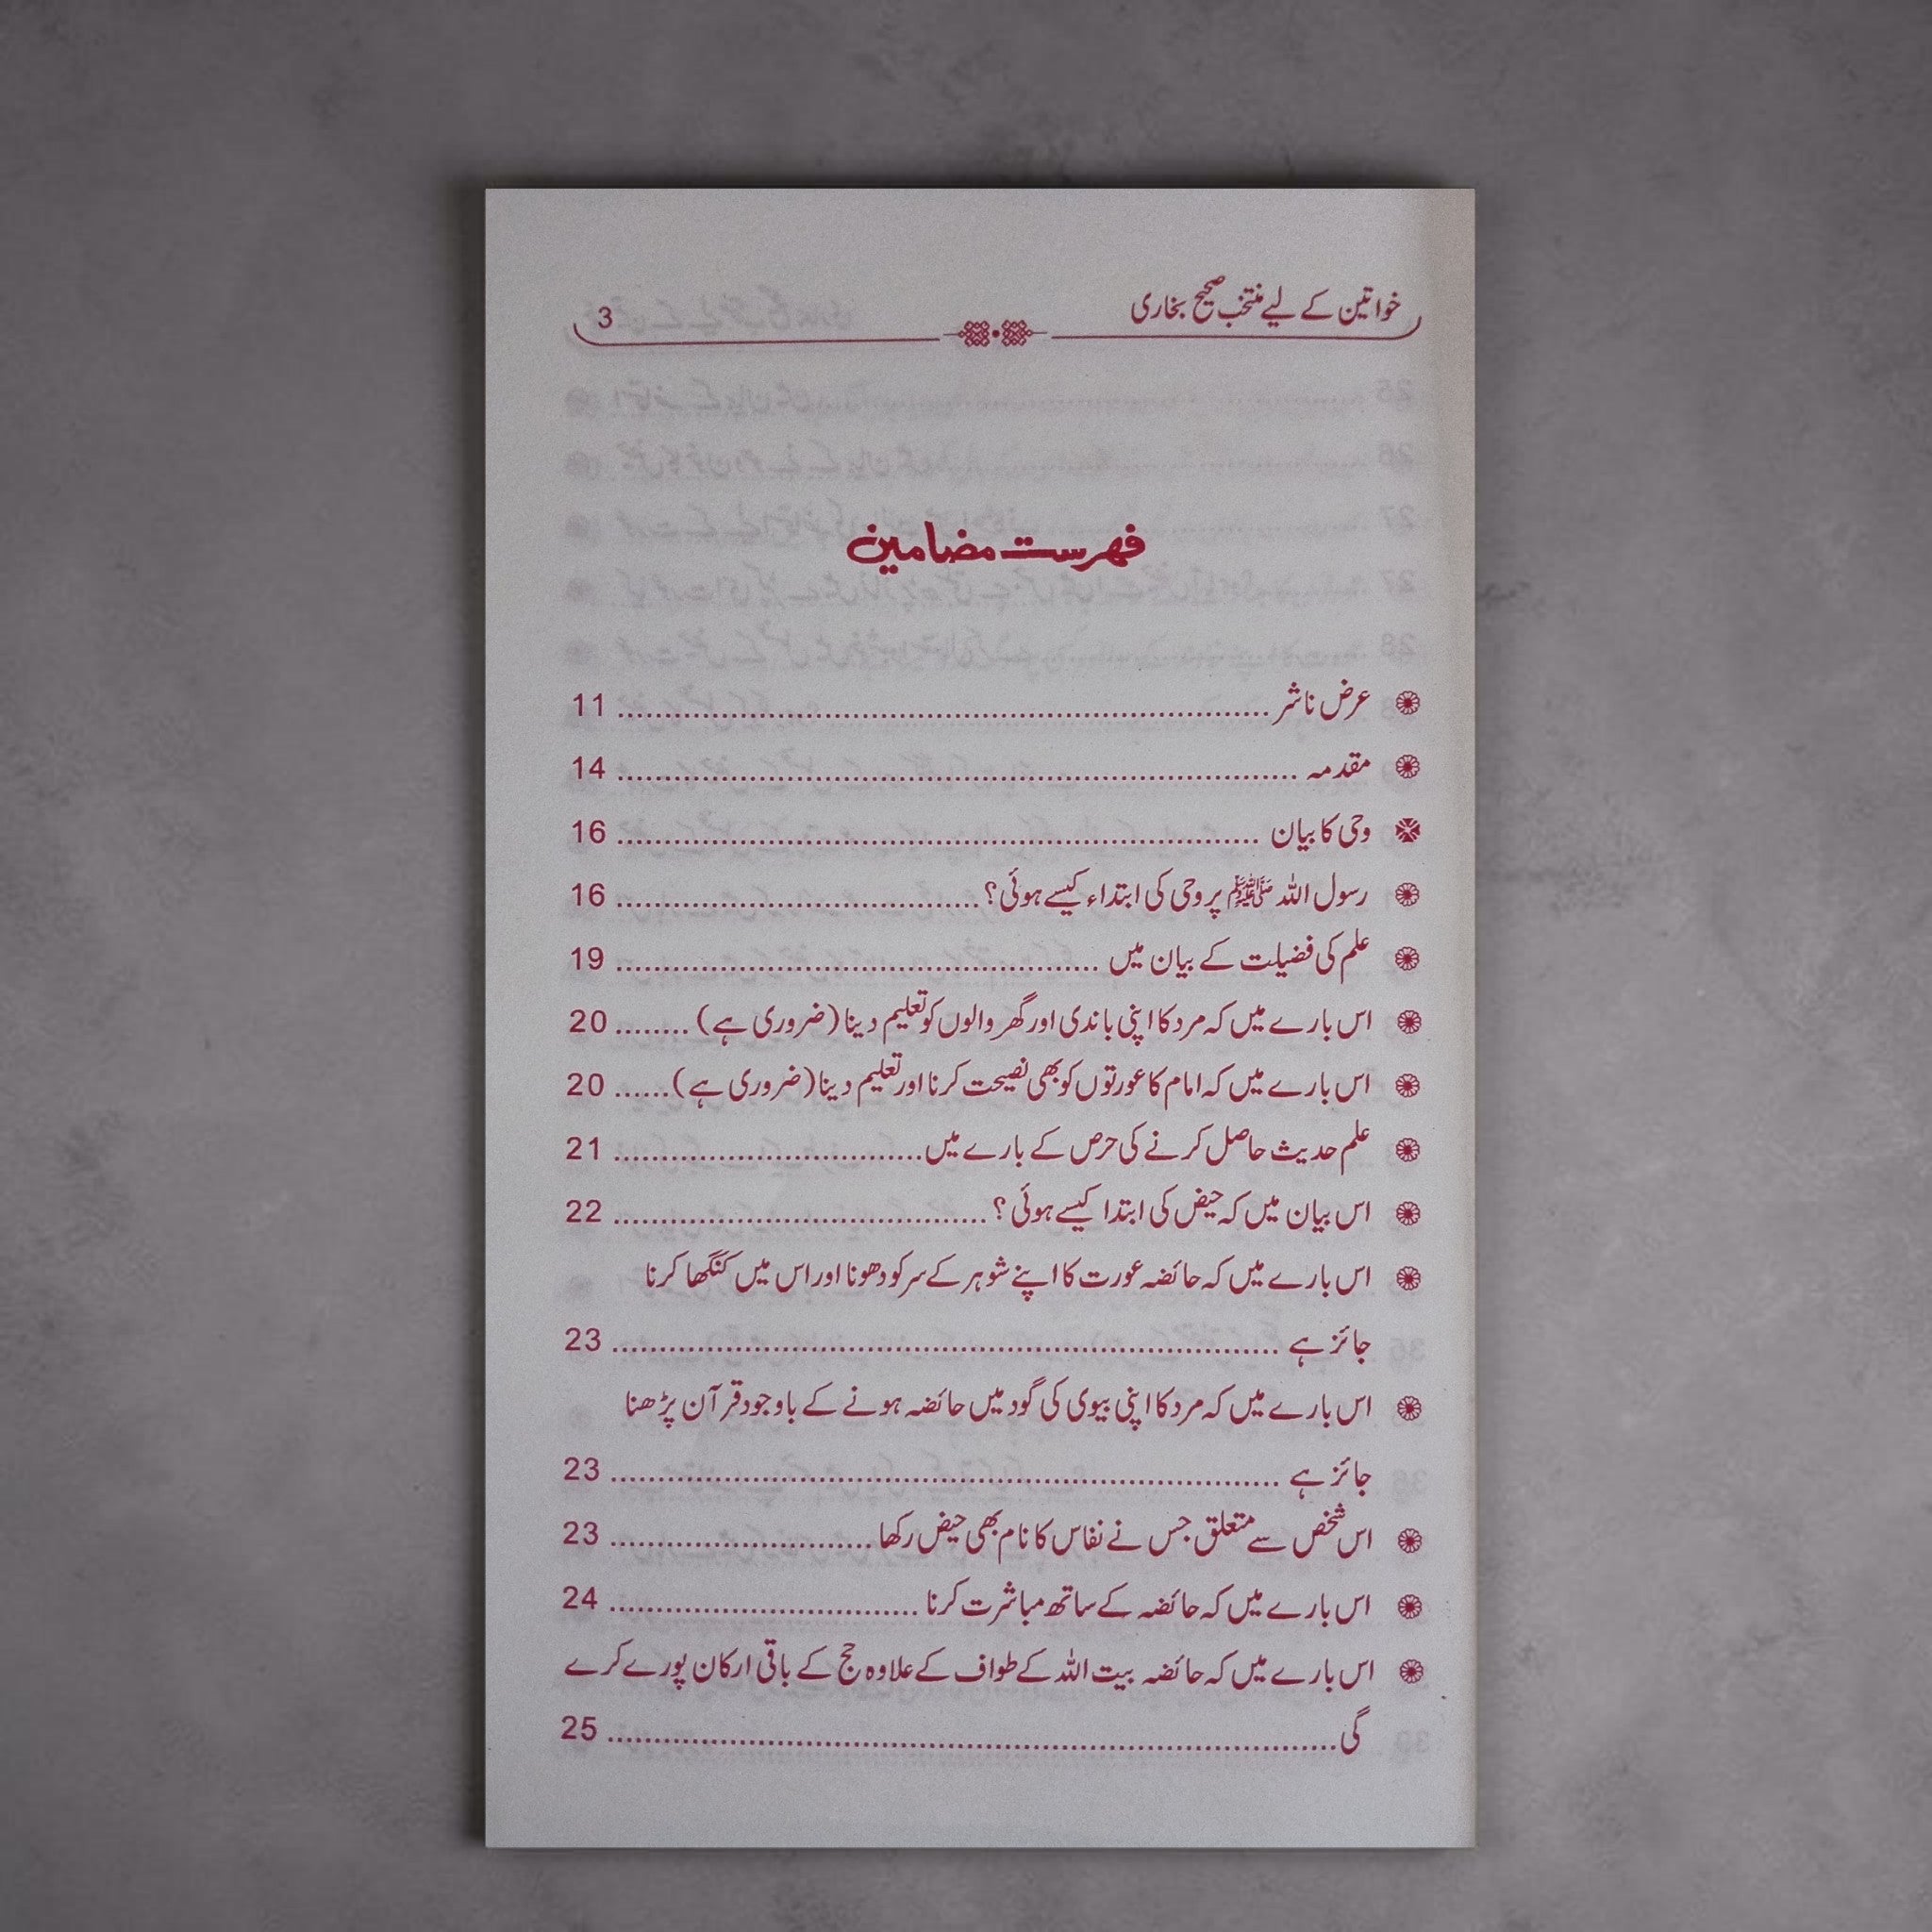 خواتین کے لیے منتخب صحیح بخاری 3
فہرست مضامین
عرض ناشر ........ 11
مقدمہ ........ 14
وحی کا بیان ........ 16
رسول اللہ ﷺ پر وحی کی ابتداء کیسے ہوئی؟ ........ 16
علم کی فضیلت کے بیان میں ........ 19
اس بارے میں کہ مرد کا اپنی باندی اور گھر والوں کو تعلیم دینا (ضروری ہے) ........ 20
اس بارے میں کہ امام کا عورتوں کو بھی نصیحت کرنا اور تعلیم دینا (ضروری ہے) ...... 20
علم حدیث حاصل کرنے کی حرص کے بارے میں ........ 21
اس بیان میں کہ حیض کی ابتدا کیسے ہوئی؟ ........ 22
اس بارے میں کہ حائضہ عورت کا اپنے شوہر کے سر کو دھونا اور اس میں کنگھا کرنا
جائز ہے ........ 23
اس بارے میں کہ مرد کا اپنی بیوی کی گود میں حائضہ ہونے کے باوجود قرآن پڑھنا
جائز ہے ........ 23
اس شخص سے متعلق جس نے نفاس کا نام بھی حیض رکھا ........ 23
اس بارے میں کہ حائضہ کے ساتھ مباشرت کرنا ........ 24
اس بارے میں کہ حائضہ بیت اللہ کے طواف کے علاوہ حج کے باقی ارکان پورے کرے
گی ........ 25